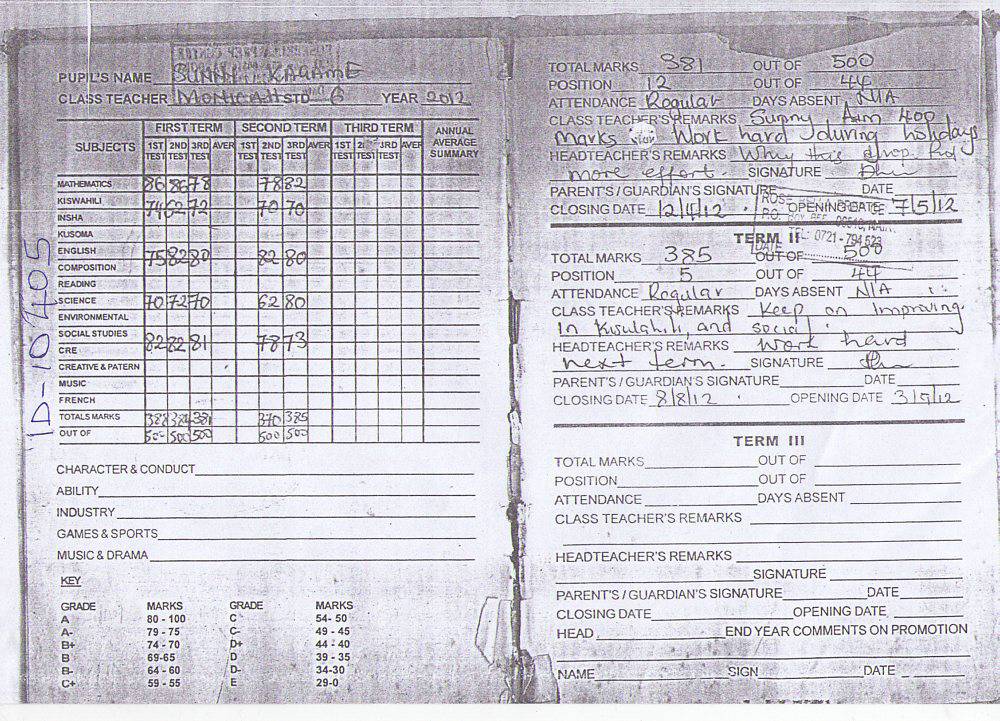 PUPIL'S NAME SUNNY KAGAME
CLASS TEACHER MONICAH STD 6 YEAR 2012
SUBJECTS FIRST TERM SECOND TERM THIRD TERM ANNUAL AVERAGE SUMMARY
1ST TEST 2ND TEST 3RD TEST AVER 1ST TEST 2ND TEST 3RD TEST AVER 1ST TEST 2 TEST 3RD TEST AVER
MATHEMATICS 86 86 78 78 82
KISWAHILI 74 62 72 70 70
INSHA
KUSOMA
ENGLISH 75 82 80 82 80
COMPOSITION
READING
SCIENCE 70 72 70 62 80
ENVIRONMENTAL
SOCIAL STUDIES 82 82 81 78 73
CRE
CREATIVE & PATERN
MUSIC
FRENCH
TOTALS MARKS 381 370 385
OUT OF 500 500 500 500 500
CHARACTER & CONDUCT
ABILITY
INDUSTRY
GAMES & SPORTS
MUSIC & DRAMA
KEY
GRADE MARKS GRADE MARKS
A 80 - 100 C 54- 50
A- 79 - 75 C- 49 - 45
B+ 74 - 70 D+ 44 - 40
B 69-65 D 39 - 35
B- 64 - 60 D- 34-30
C+ 59 - 55 E 29-0
ID-107405
TOTAL MARKS 381 OUT OF 500
POSITION 12 OUT OF 44
ATTENDANCE Regular DAYS ABSENT N/A
CLASS TEACHER'S REMARKS Sunny, Aim 400
marks Work hard during holidays
HEADTEACHER'S REMARKS Why this drop. Put
more effort. SIGNATURE
PARENT'S / GUARDIAN'S SIGNATURE DATE
CLOSING DATE 12/4/12 OPENING DATE 7/5/12
TEL: 0721 - 794 523
DATE
TERM II
TOTAL MARKS 385 OUT OF 500
POSITION 5 OUT OF 44
ATTENDANCE Regular DAYS ABSENT N/A
CLASS TEACHER'S REMARKS Keep on improving
in Kiswahili, and social
HEADTEACHER'S REMARKS Work hard
next term. SIGNATURE
PARENT'S / GUARDIAN'S SIGNATURE DATE
CLOSING DATE 8/8/12 OPENING DATE 3/9/12
TERM III
TOTAL MARKS OUT OF
POSITION OUT OF
ATTENDANCE DAYS ABSENT
CLASS TEACHER'S REMARKS
HEADTEACHER'S REMARKS
SIGNATURE
PARENT'S / GUARDIAN'S SIGNATURE DATE
CLOSING DATE OPENING DATE
HEAD END YEAR COMMENTS ON PROMOTION
NAME SIGN DATE